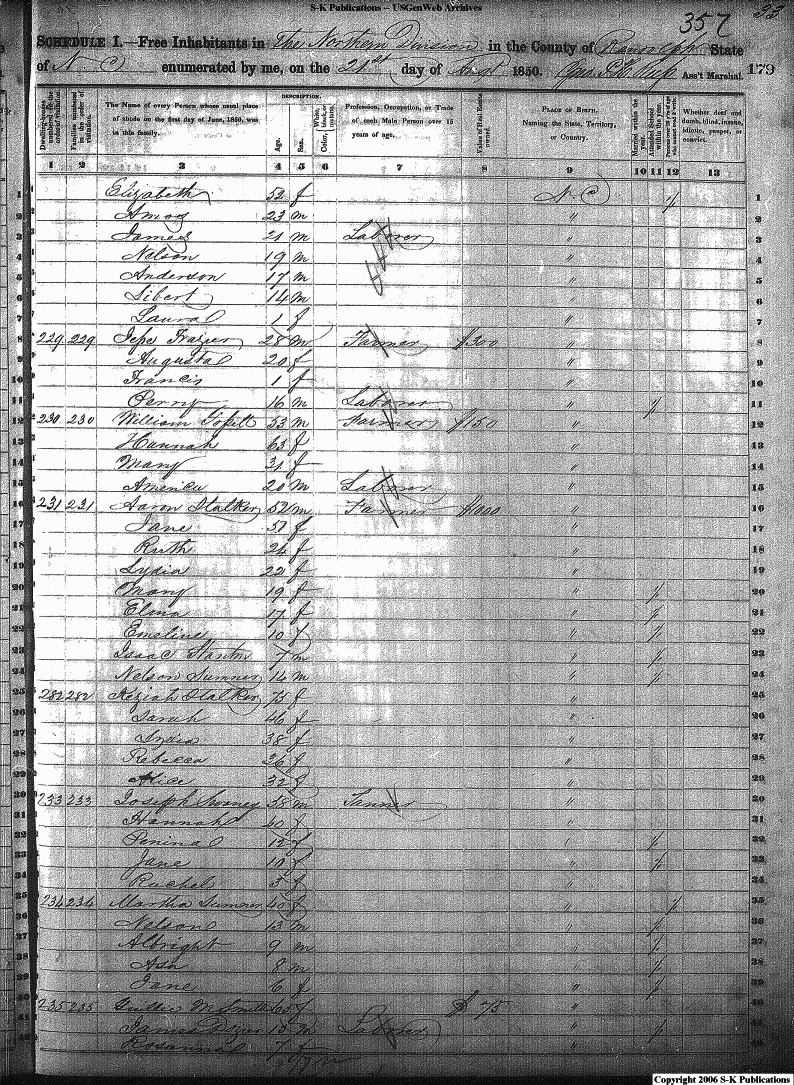 S-K Publications – USGenWeb Archives
357
SCHEDULE I.—Free Inhabitants in The Northern Division in the County of Randolph State
of N C enumerated by me, on the 21st day of Augt 1850. Ass't Marshal. 179
DESCRIPTION.
Dwelling-houses numbered in the order of visitation.
Families numbered in the order of visitation.
The Name of every Person whose usual place of abode on the first day of June, 1850, was in this family.
Age.
Sex.
Color, White, black, or mulatto.
Profession, Occupation, or Trade of each Male Person over 15 years of age.
Value of Real Estate owned.
PLACE OF BIRTH. Naming the State, Territory, or Country.
Married within the year.
Attended School within the year.
Persons over 20 y'rs of age who cannot read & write.
Whether deaf and dumb, blind, insane, idiotic, pauper, or convict.
1 2 3 4 5 6 7 8 9 10 11 12 13
1 Elizabeth 52 f N C / 1
2 Amos 23 m " 2
3 James 21 m Laborer " 3
4 Nelson 19 m " 4
5 Anderson 17 m " 5
6 14 m " 6
7 Laura 1 f " 7
8 229 229 Jesse Frazier 28 m Farmer $300 " 8
9 Augusta 20 f " 9
10 Francis 1 f " 10
11 Perry 16 m Laborer " / 11
12 230 230 William 53 m Farmer $150 " 12
13 Hannah 63 f " 13
14 Mary 31 f " 14
15 America 20 m Laborer " 15
16 231 231 Aaron Stalker 52 m Farmer $1000 " 16
17 Jane 57 f " 17
18 Ruth 24 f " 18
19 Lydia 22 f " 19
20 Mary 19 f " / 20
21 Elena 17 f " / 21
22 Emeline 10 f " / 22
23 Isaac Stanton 7 m " / 23
24 Nelson Sumner 14 m " / 24
25 232 232 Keziah Stalker 75 f " 25
26 Sarah 46 f " 26
27 India 38 f " 27
28 Rebecca 26 f " 28
29 Alice 32 f " 29
30 233 233 Joseph Swaney 38 m Tanner " 30
31 Hannah 40 f "
32 Penina 12 f " / 32
33 Jane 10 f " / 33
34 Rachel 5 f " 34
35 234 234 Martha Sumner 40 f " / 35
36 Nelson 13 m " / 36
37 Albright 9 m " / 37
38 Asa 8 m " / 38
39 Jane 6 f " / 39
40 235 235 M Smith 65 f $75 " 40
41 James Dozier 15 m Laborer " / 41
Rosanna 7 f "
Copyright 2006 S-K Publications